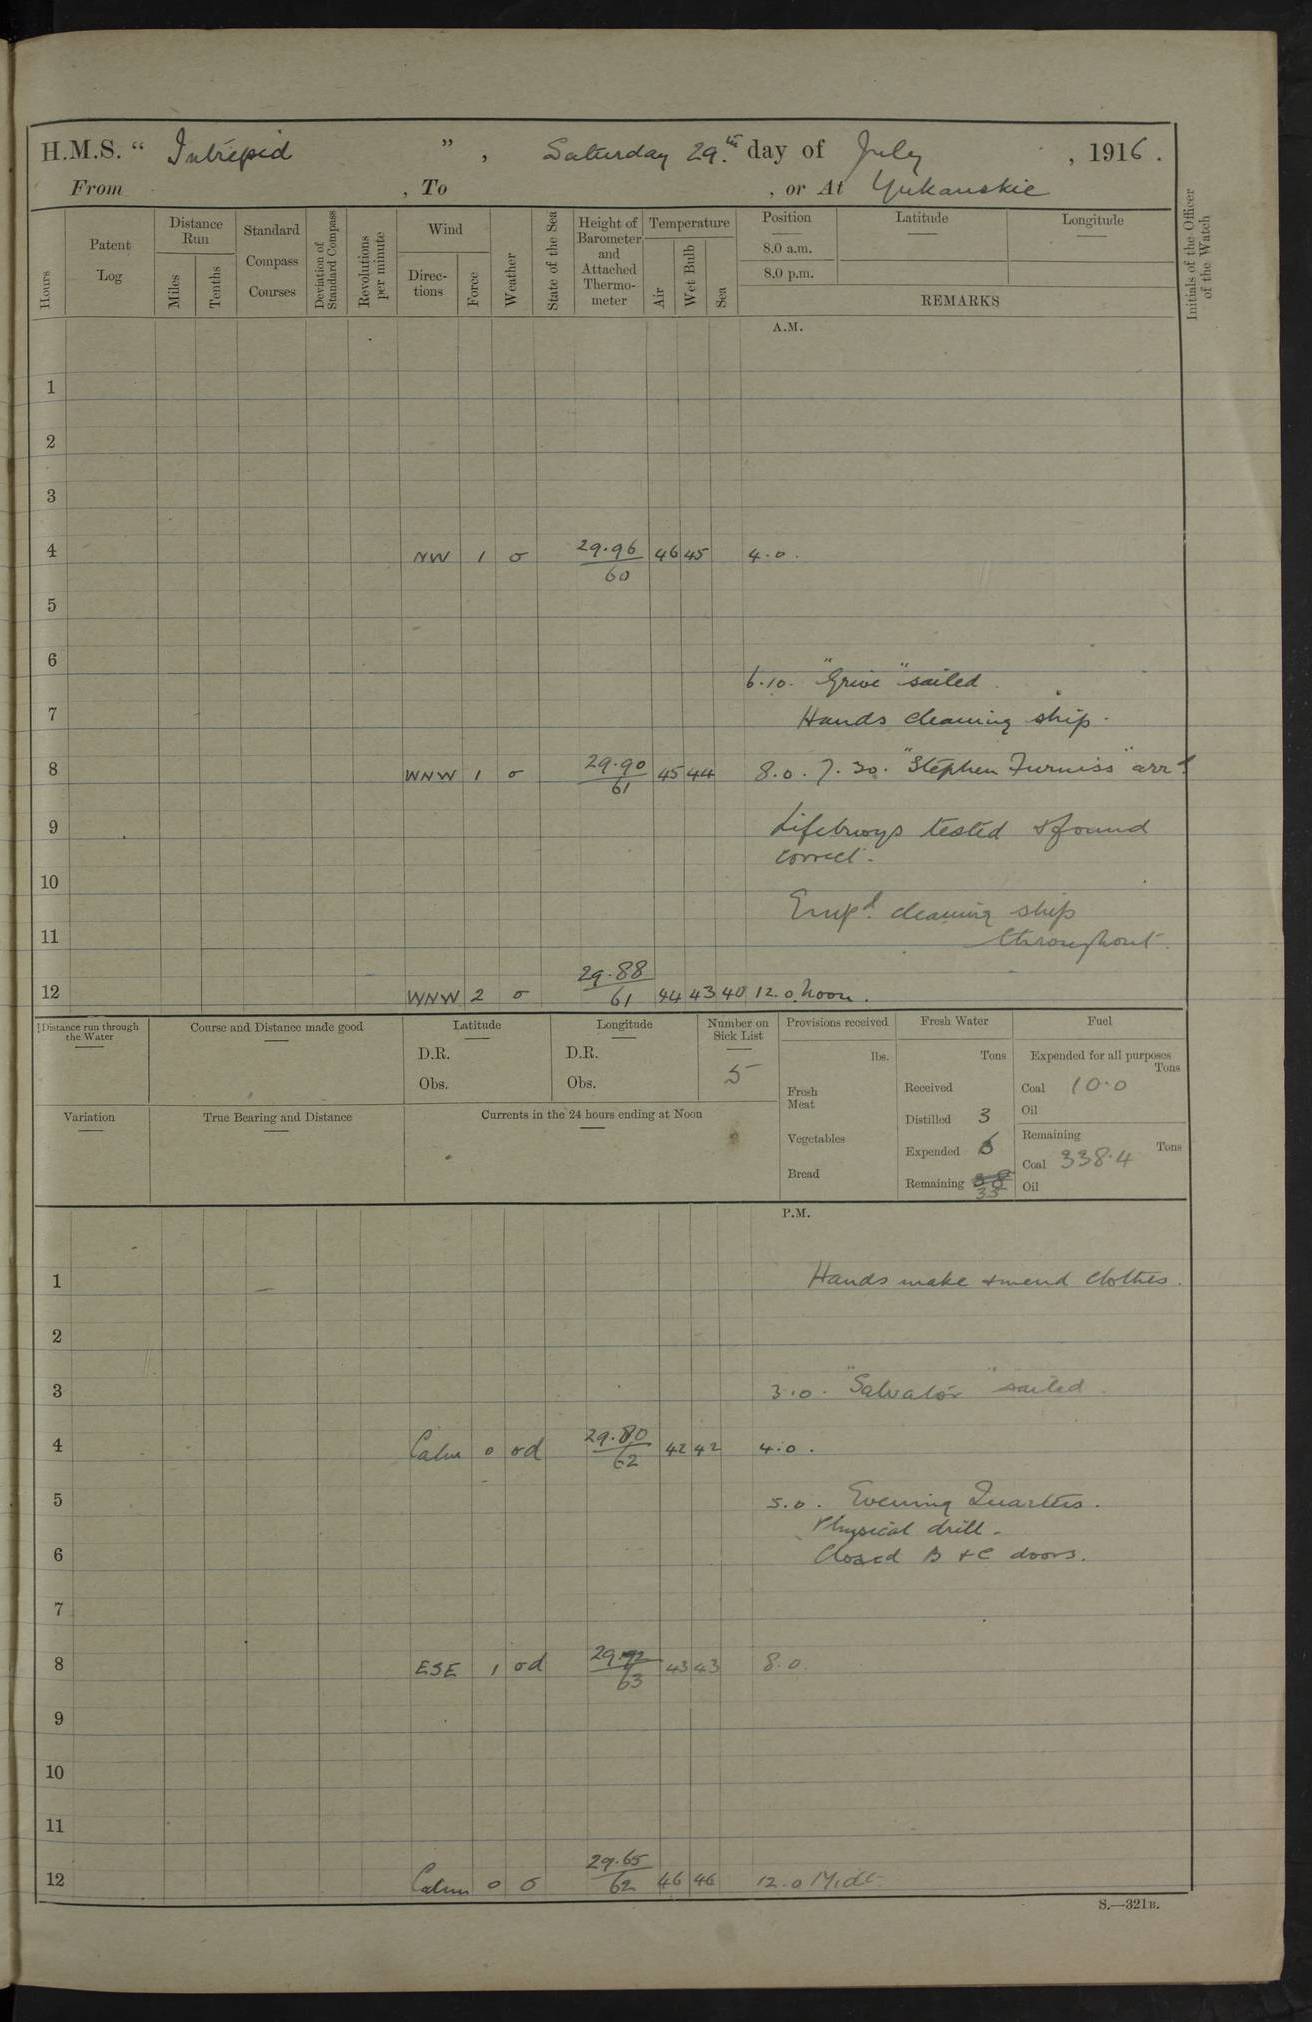 H.M.S. “ Intrepid ” , Saturday 29.th day of July , 1916 .
From , To , or At Yukanskie
Hours
Patent Log
Distance Run
Miles
Tenths
Standard Compass Courses
Deviation of Standard Compass
Revolutions per minute
Wind
Direc- tions
Force
Weather
State of the Sea
Height of Barometer and Attached Thermo- meter
Temperature
Air
Wet Bulb
Sea
Position
8.0 a.m.
8.0 p.m.
Latitude
Longitude
REMARKS
Initials of the Officer of the Watch
A.M.
1
2
3
4 NW 1 o 29.96/60 46 45 4.0.
5
6
6.10. "Grive" sailed.
7 Hands cleaning ship.
8 WNW 1 o 29.90/61 45 44 8.0. 7.30. "Stephen Furniss" arrd
9 Lifebuoys tested & found
correct.
10
Empd. cleaning ship
11 throughout.
12 WNW 2 o 29.88/61 44 43 40 12.0 Noon.
Distance run through the Water
Course and Distance made good
Latitude
D.R.
Obs.
Longitude
D.R.
Obs.
Number on Sick List
5
Provisions received
lbs.
Fresh Meat
Vegetables
Bread
Fresh Water
Tons
Received
Distilled 3
Expended 6
Remaining 38 35
Fuel
Expended for all purposes
Tons
Coal 10.0
Oil
Remaining
Tons
Coal 338.4
Oil
Variation
True Bearing and Distance
Currents in the 24 hours ending at Noon
P.M.
1 Hands make & mend clothes.
2
3 3.0. "Salvator" sailed.
4 Calm 0 od 29.80/62 42 42 4.0.
5 5.0. Evening Quarters.
Physical drill.
6 Closed B & C doors.
7
8 ESE 1 od 63 43 43 8.0.
9
10
11
12 Calm 0 o 29.65/62 46 46 12.0 Midt.
S.—321B.